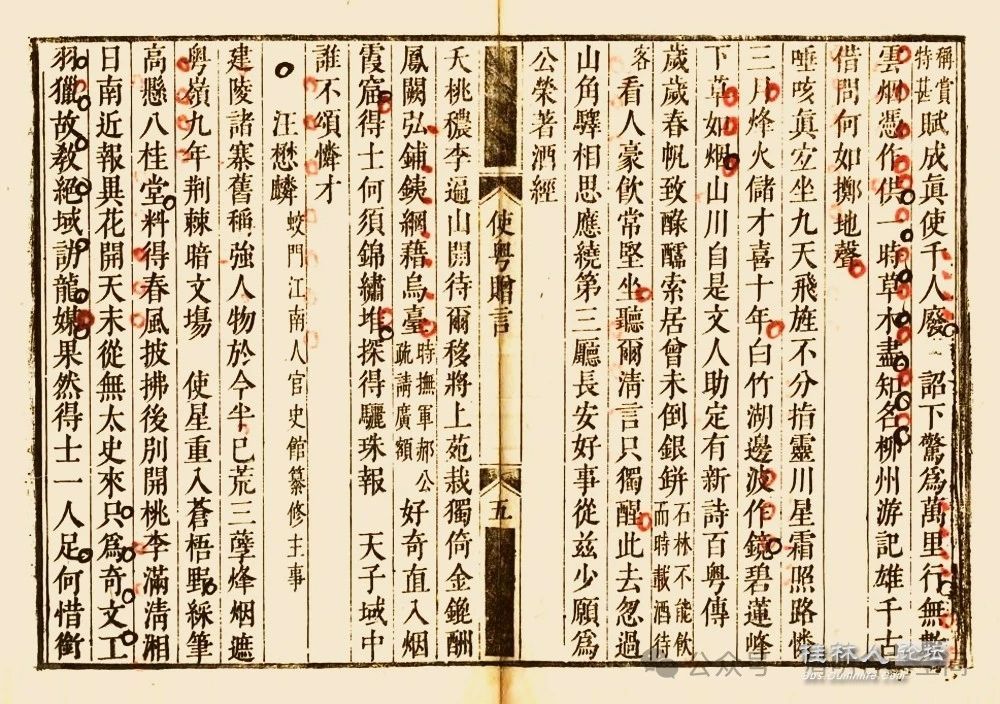 稱賞特甚賦成眞使千人廢 詔下驚爲萬里行無數
雲烟憑作供一時草木盡知名柳州游記雄千古
借問何如擲地聲
唾咳眞空坐九天飛旌不分指靈川星霜照路憐
三月烽火儲才喜十年白竹湖邊波作鏡碧蓮峰
下草如烟山川自是文人助定有新詩百粤傳
歲歲春帆致醁醽索居曾未倒銀缾石林不能飲而時載酒待
客看人豪飲常堅坐聽爾淸言只獨醒此去忽過
山角驛相思應繞第三廳長安好事從兹少願爲
公榮著酒經
使粤贈言
五
夭桃穠李遍山開待爾移將上苑栽獨倚金鎞酬
鳳闕弘鋪鐵網藉烏臺時撫軍郝公疏請廣額好奇直入烟
霞窟得士何須錦繡堆探得驪珠報 天子域中
誰不頌憐才
汪懋麟蛟門江南人官史館纂修主事
建陵諸寨舊稱強人物於今半已荒三孽烽烟遮
粤嶺九年荆棘暗文塲 使星重入蒼梧野綵筆
高懸八桂堂料得春風披拂後別開桃李滿淸湘
日南近報異花開天末從無太史來只爲奇文工
羽獵故敎絕域訪龍媒果然得士一人足何惜衡
桂林人论坛
bbs.guilinlife.com
公众号